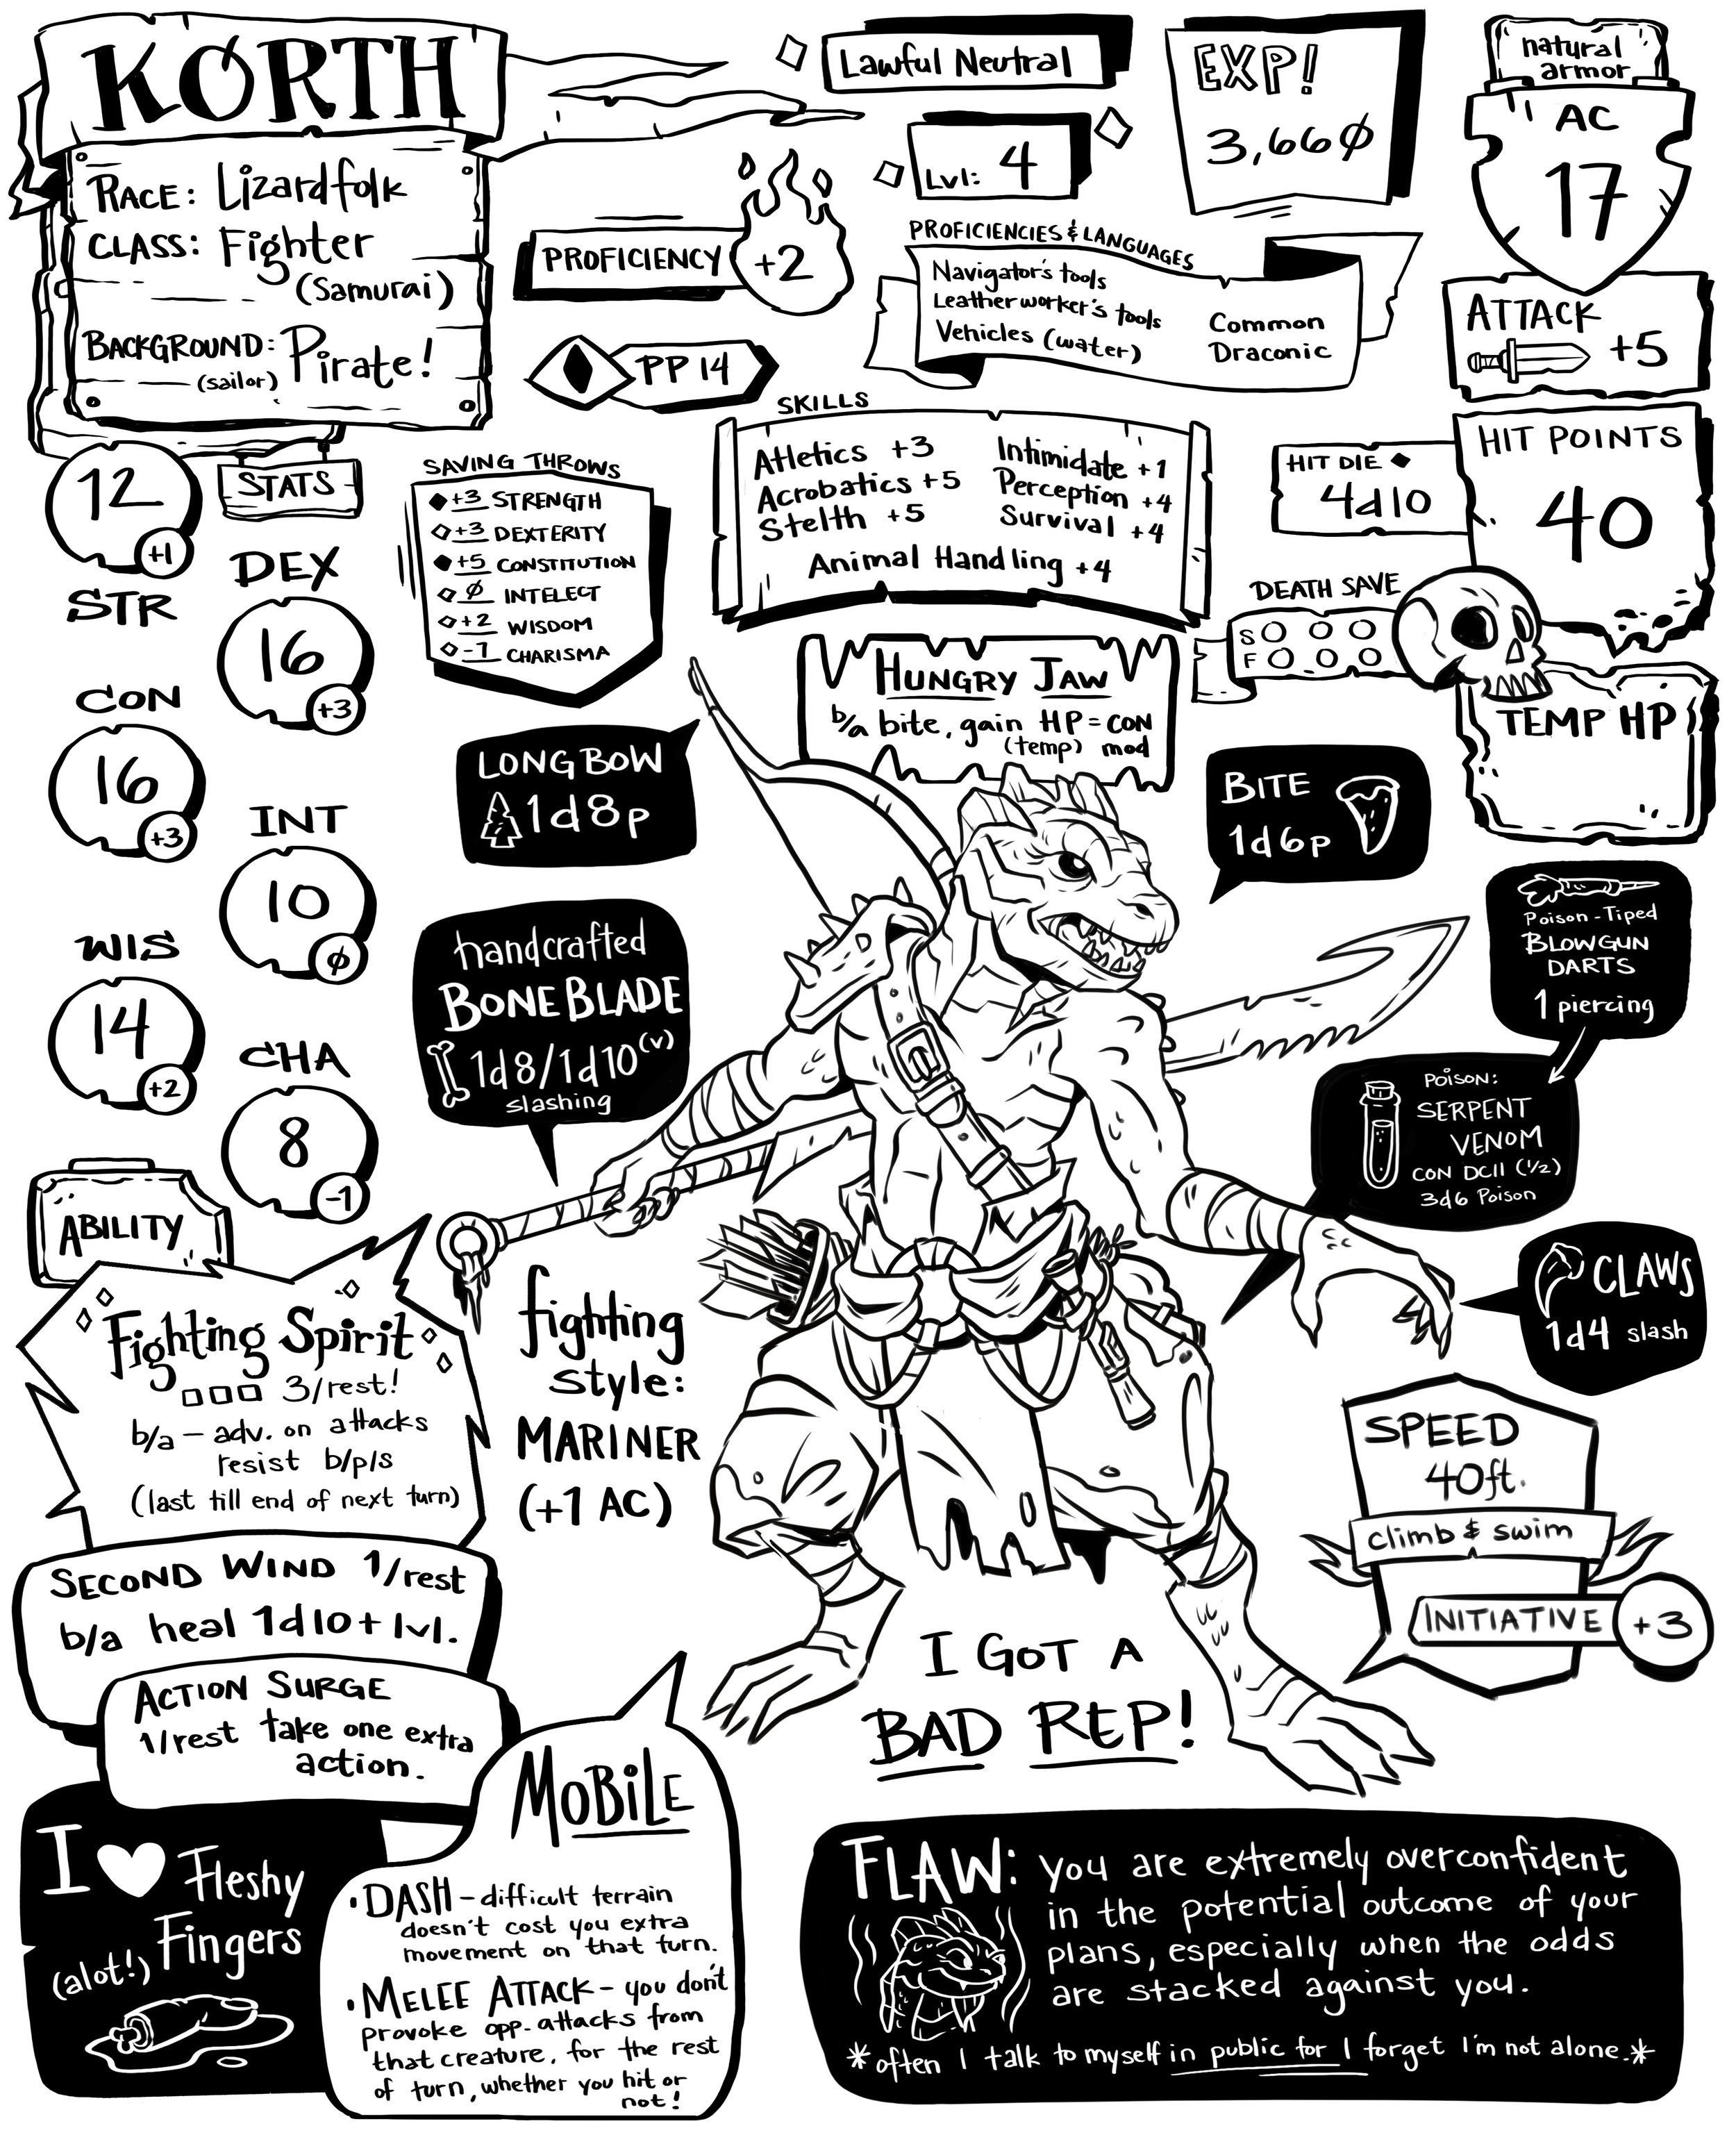 KØRTH
RACE: Lizardfolk
CLASS: Fighter
(Samurai)
BACKGROUND: Pirate!
(sailor)
Lawful Neutral
Lvl: 4
EXP!
3,66Ø
natural
armor
AC
17
PROFICIENCY +2
PP 14
PROFICIENCIES & LANGUAGES
Navigator's tools
Leatherworker's tools
Vehicles (water)
Common
Draconic
ATTACK
+5
STATS
12
+1
STR
DEX
16
+3
CON
16
+3
INT
10
Ø
WIS
14
+2
CHA
8
-1
SAVING THROWS
+3 STRENGTH
+3 DEXTERITY
+5 CONSTITUTION
Ø INTELECT
+2 WISDOM
-1 CHARISMA
SKILLS
Atletics +3
Acrobatics +5
Stelth +5
Intimidate +1
Perception +4
Survival +4
Animal Handling +4
HIT DIE
4d10
HIT POINTS
40
DEATH SAVE
S
F
TEMP HP
HUNGRY JAW
b/a bite, gain HP = CON
(temp) mod
LONGBOW
1d8p
BITE
1d6p
handcrafted
BONEBLADE
1d8/1d10(v)
slashing
Poison-Tiped
BLOWGUN
DARTS
1 piercing
POISON:
SERPENT
VENOM
CON DC11 (1/2)
3d6 Poison
CLAWS
1d4 slash
ABILITY
Fighting Spirit
3/rest!
b/a - adv. on attacks
resist b/p/s
(last till end of next turn)
fighting
style:
MARINER
(+1 AC)
SPEED
40ft.
climb & swim
INITIATIVE +3
SECOND WIND 1/rest
b/a heal 1d10+lvl.
ACTION SURGE
1/rest take one extra
action.
I GOT A
BAD REP!
I ♥ Fleshy
(alot!) Fingers
MOBILE
•DASH - difficult terrain
doesn't cost you extra
movement on that turn.
•MELEE ATTACK - you don't
provoke opp-attacks from
that creature, for the rest
of turn, whether you hit or
not!
FLAW: you are extremely overconfident
in the potential outcome of your
plans, especially when the odds
are stacked against you.
*often I talk to myself in public for I forget I'm not alone.*